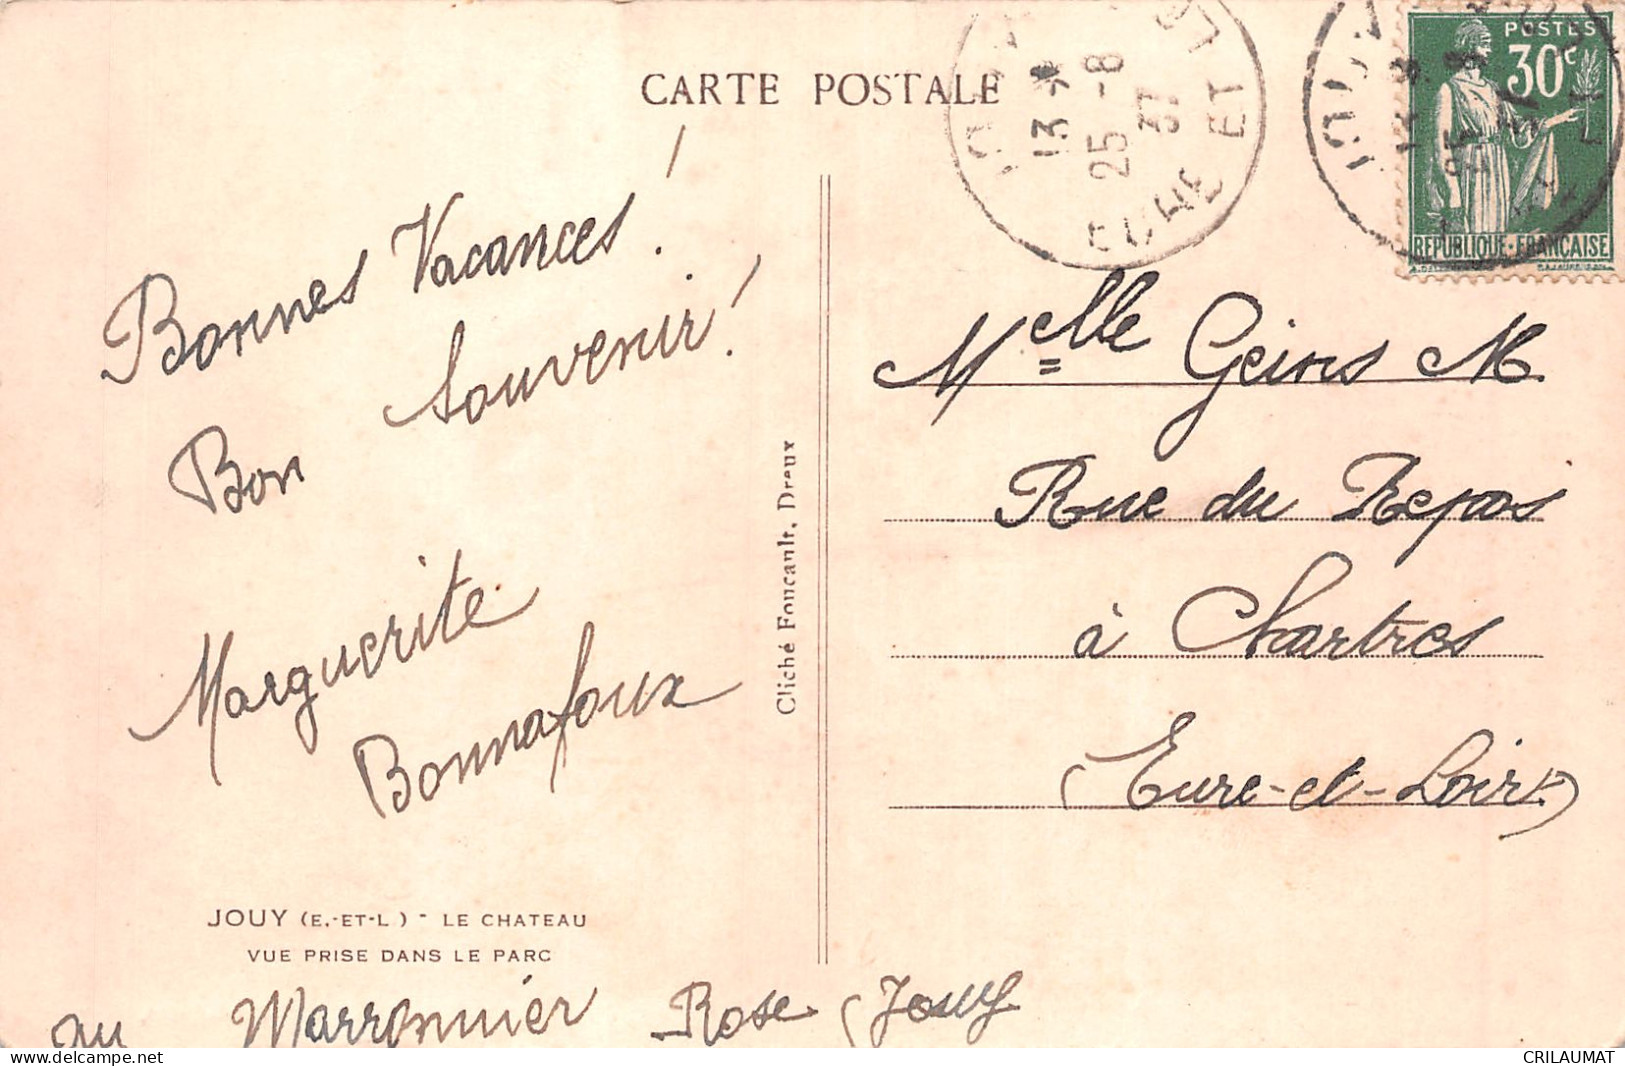 CARTE POSTALE
POSTES
30c
REPUBLIQUE-FRANÇAISE
13
25-8
37
EURE ET L
Bonnes Vacances!
Bon Souvenir!
Marguerite
Bonnafoux
Cliché Foucault, Dreux
Melle Geins M
Rue du Repos
à Chartres
(Eure-et-Loir)
JOUY (E.-ET-L) - LE CHATEAU
VUE PRISE DANS LE PARC
au Marronnier Rose (Jouy
delcampe.net
CRILAUMAT